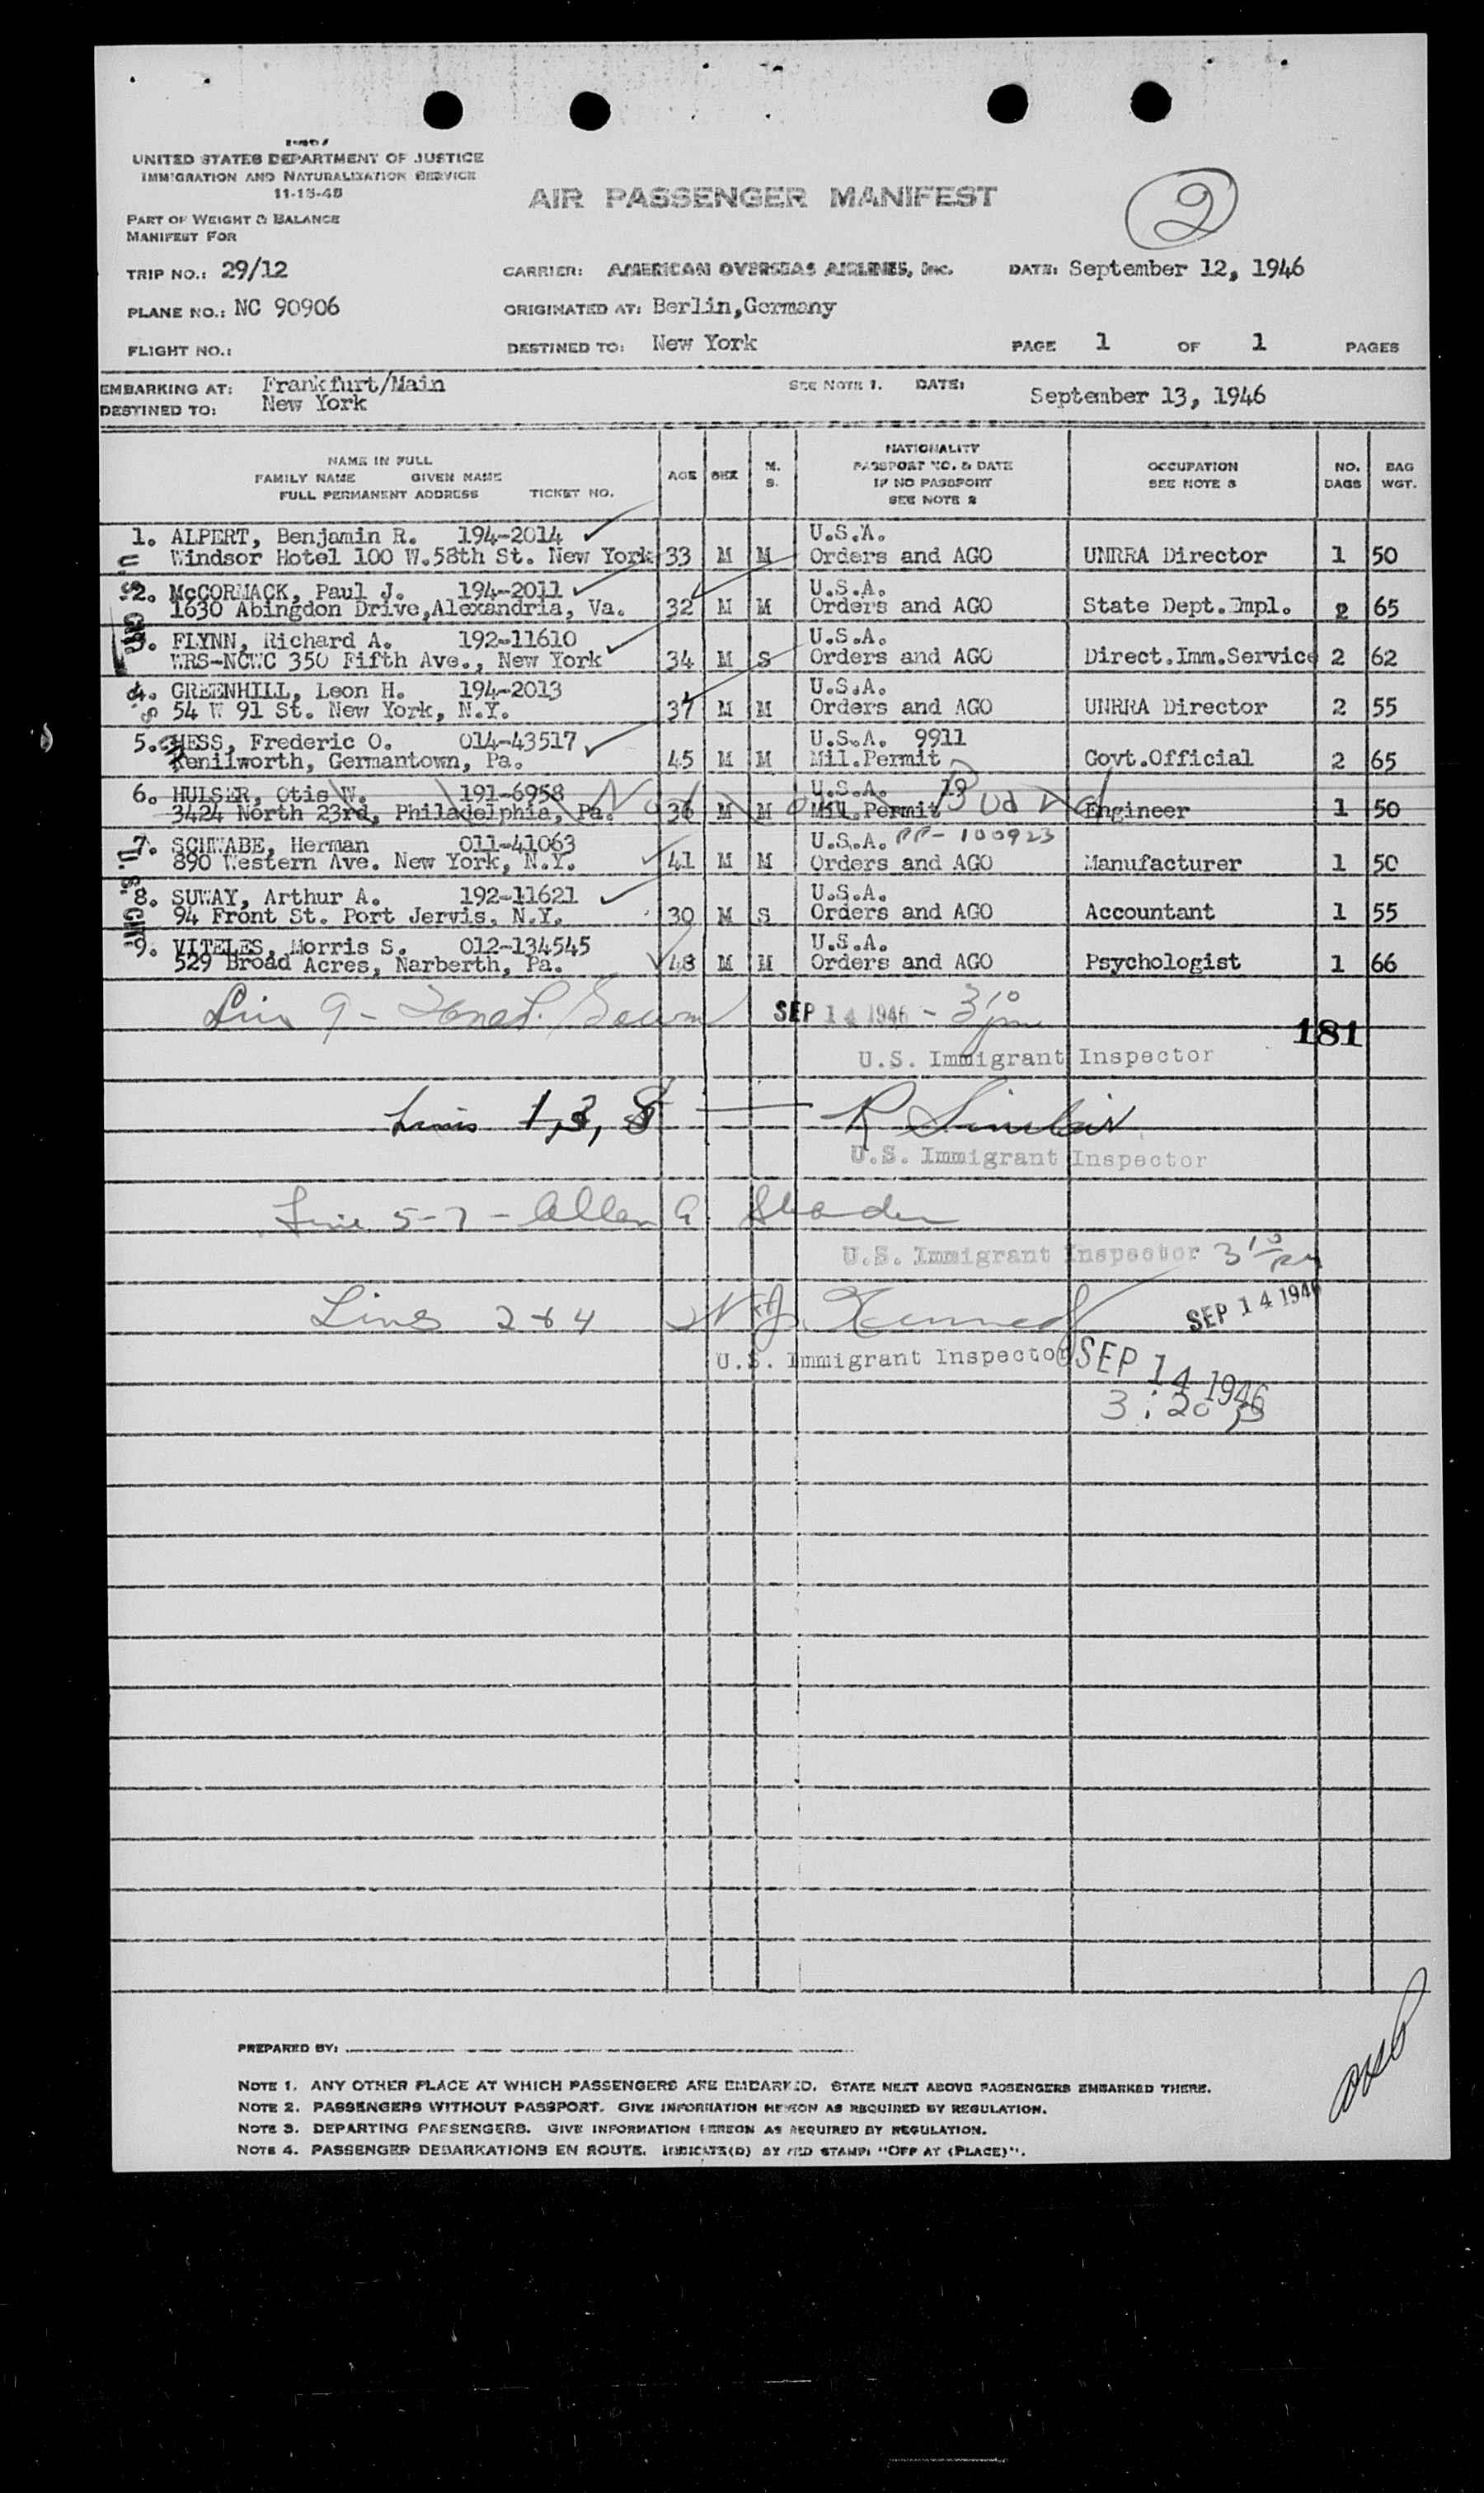 UNITED STATES DEPARTMENT OF JUSTICE
IMMIGRATION AND NATURALIZATION SERVICE
11-15-45
AIR PASSENGER MANIFEST
2
PART OF WEIGHT & BALANCE
MANIFEST FOR
TRIP NO.: 29/12 CARRIER: AMERICAN OVERSEAS AIRLINES, Inc. DATE: September 12, 1946
PLANE NO.: NC 90906 ORIGINATED AT: Berlin,Germany
FLIGHT NO.: DESTINED TO: New York PAGE 1 OF 1 PAGES
EMBARKING AT: Frankfurt/Main SEE NOTE 1. DATE: September 13, 1946
DESTINED TO: New York
NAME IN FULL
FAMILY NAME GIVEN NAME
FULL PERMANENT ADDRESS TICKET NO.
AGE SEX M. S.
NATIONALITY
PASSPORT NO. & DATE
IF NO PASSPORT
SEE NOTE 2
OCCUPATION
SEE NOTE 3
NO. BAGS
BAG WGT.
1. ALPERT, Benjamin R. 194-2014 U.S.A.
Windsor Hotel 100 W.58th St. New York 33 M M Orders and AGO UNRRA Director 1 50
2. McCORMACK, Paul J. 194-2011 U.S.A.
1630 Abingdon Drive,Alexandria, Va. 32 M M Orders and AGO State Dept.Empl. 2 65
3. FLYNN, Richard A. 192-11610 U.S.A.
WRS-NCWC 350 Fifth Ave., New York 34 M S Orders and AGO Direct.Imm.Service 2 62
4. GREENHILL, Leon H. 194-2013 U.S.A.
54 W 91 St. New York, N.Y. 37 M M Orders and AGO UNRRA Director 2 55
5. HESS, Frederic O. 014-43517 U.S.A. 9911
Kenilworth, Germantown, Pa. 45 M M Mil.Permit Govt.Official 2 65
6. HULSER, Otis W. 191-6958 U.S.A. 19
3424 North 23rd, Philadelphia, Pa. 36 M M Mil.Permit Engineer 1 50
Not on Board
7. SCHWABE, Herman 011-41063 U.S.A. PP- 100923
890 Western Ave. New York, N.Y. 41 M M Orders and AGO Manufacturer 1 50
8. SUWAY, Arthur A. 192-11621 U.S.A.
94 Front St. Port Jervis, N.Y. 30 M S Orders and AGO Accountant 1 55
9. VITELES, Morris S. 012-134545 U.S.A.
529 Broad Acres, Narberth, Pa. 48 M M Orders and AGO Psychologist 1 66
Line 9 - SEP 14 1946 - 3 10 pm
181
U.S. Immigrant Inspector
Lines 1, 3, 8 — R Sinclair
U.S. Immigrant Inspector
Line 5-7 - Allen A.
U.S. Immigrant Inspector 3 10 pm
SEP 14 1946
Lines 2 & 4 Kennedy
U.S. Immigrant Inspector SEP 14 1946
3:20 p
PREPARED BY:
NOTE 1. ANY OTHER PLACE AT WHICH PASSENGERS ARE EMBARKED. STATE NEXT ABOVE PASSENGERS EMBARKED THERE.
NOTE 2. PASSENGERS WITHOUT PASSPORT. GIVE INFORMATION HEREON AS REQUIRED BY REGULATION.
NOTE 3. DEPARTING PASSENGERS. GIVE INFORMATION HEREON AS REQUIRED BY REGULATION.
NOTE 4. PASSENGER DEBARKATIONS EN ROUTE. INDICATE(D) BY RED STAMP: "OFF AT (PLACE)".